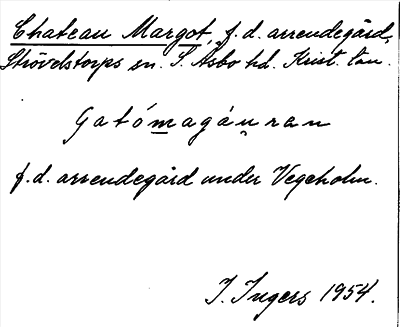 Chateau Margot, f.d. arrendegård,
Strövelstorps sn. S. Åsbo hd. Krist. län.
Gatómagáu̯ran
f.d. arrendegård under Vegeholm.
I. Ingers 1954.